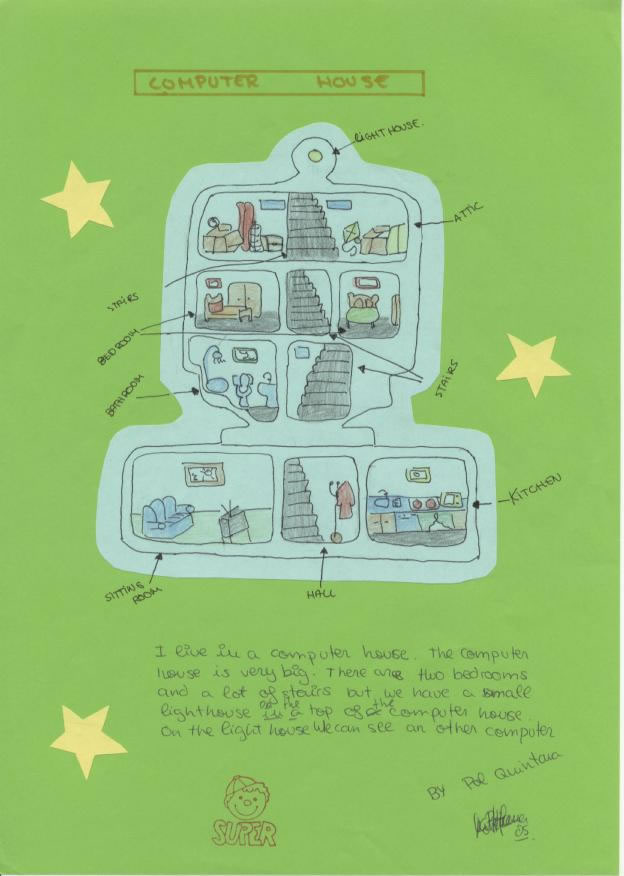 COMPUTER HOUSE
LIGHTHOUSE.
ATTIC
STAIRS
BEDROOM
BATHROOM
STAIRS
KITCHEN
SITTING
ROOM
HALL
I live in a computer house. The computer
house is very big. There are two bedrooms
and a lot of stairs but we have a small
on the the
lighthouse in a top of a computer house.
On the light house We can see an other computer
BY Pol Quintana
05
SUPER